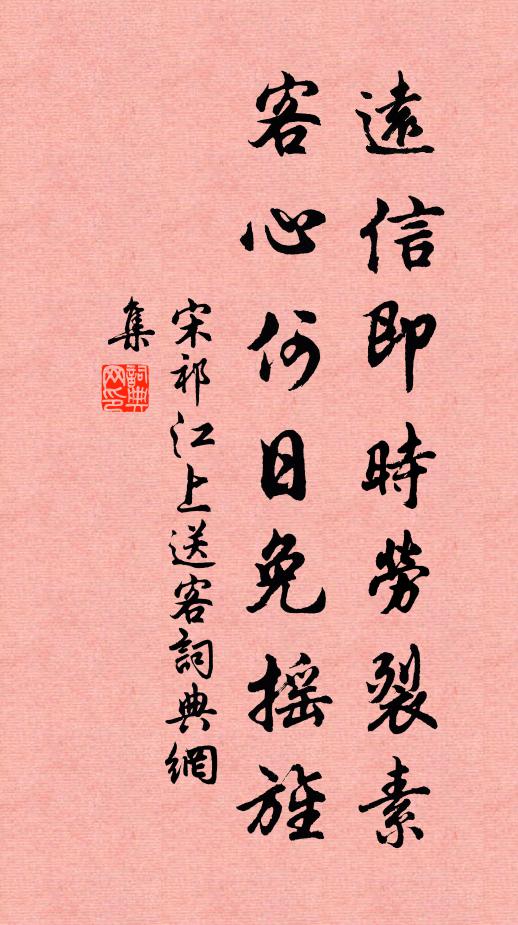 遠信即時勞裂素
客心何日免摇旌
宋祁江上送客詞典網
集
詞典
网印